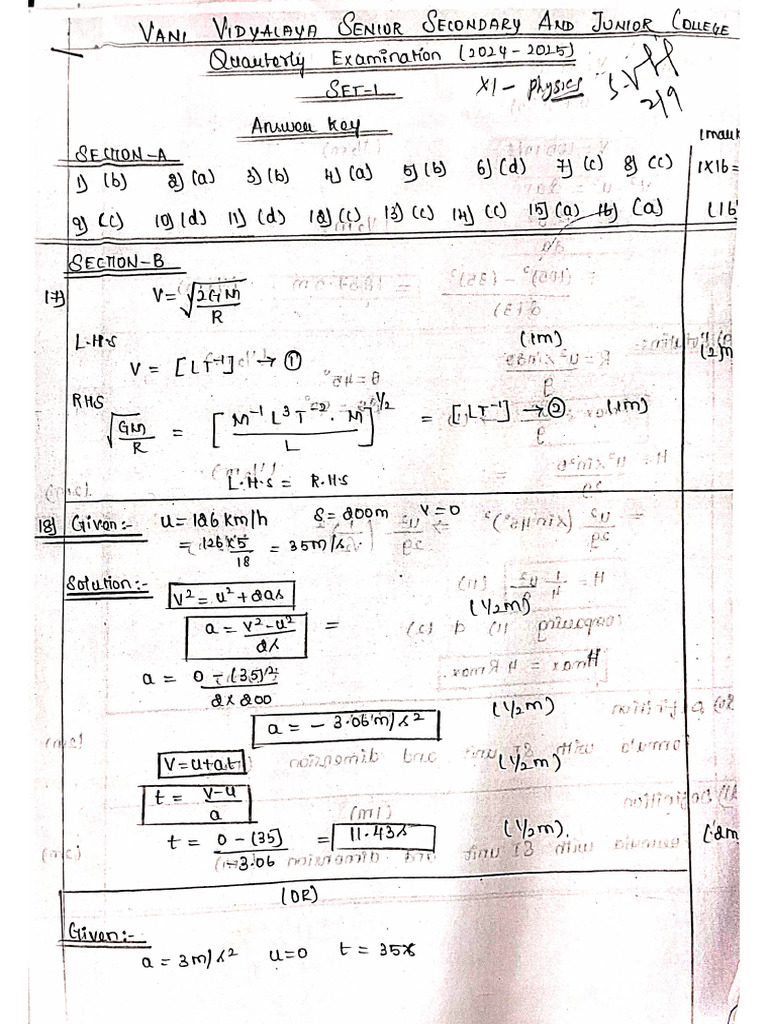 VANI VIDYALAYA SENIOR SECONDARY AND JUNIOR COLLEGE
Quarterly Examination (2024-2025)
SET-1
XI - Physics
2/9
Answer key
SECTION-A
1) (b) 2) (a) 3) (b) 4) (a) 5) (b) 6) (d) 7) (c) 8) (c) 1X16=
9) (c) 10) (d) 11) (d) 12) (c) 13) (c) 14) (c) 15) (a) 16) (a) (16
SECTION-B
17) V = √2GM/R
L.H.S (1m)
V = [LT⁻¹] → ① (2)m
RHS
√GM/R = [M⁻¹ L³ T⁻² · M / L]^1/2 = [LT⁻¹] → ② (1m)
L.H.S = R.H.S
18) Given:- u = 126 km/h S = 200m V = 0
= 126 x 5/18 = 35 m/s
Solution:- V² = u² + 2as (1/2m)
a = V² - u²/2s =
a = 0 - (35)²/2 x 200
a = - 3.06 m/s² (1/2m)
V = u + at (1/2m)
t = V - u/a
t = 0 - (35)/-3.06 = 11.43s (1/2m). (2m
(OR)
Given:-
a = 3m/s² u = 0 t = 35s